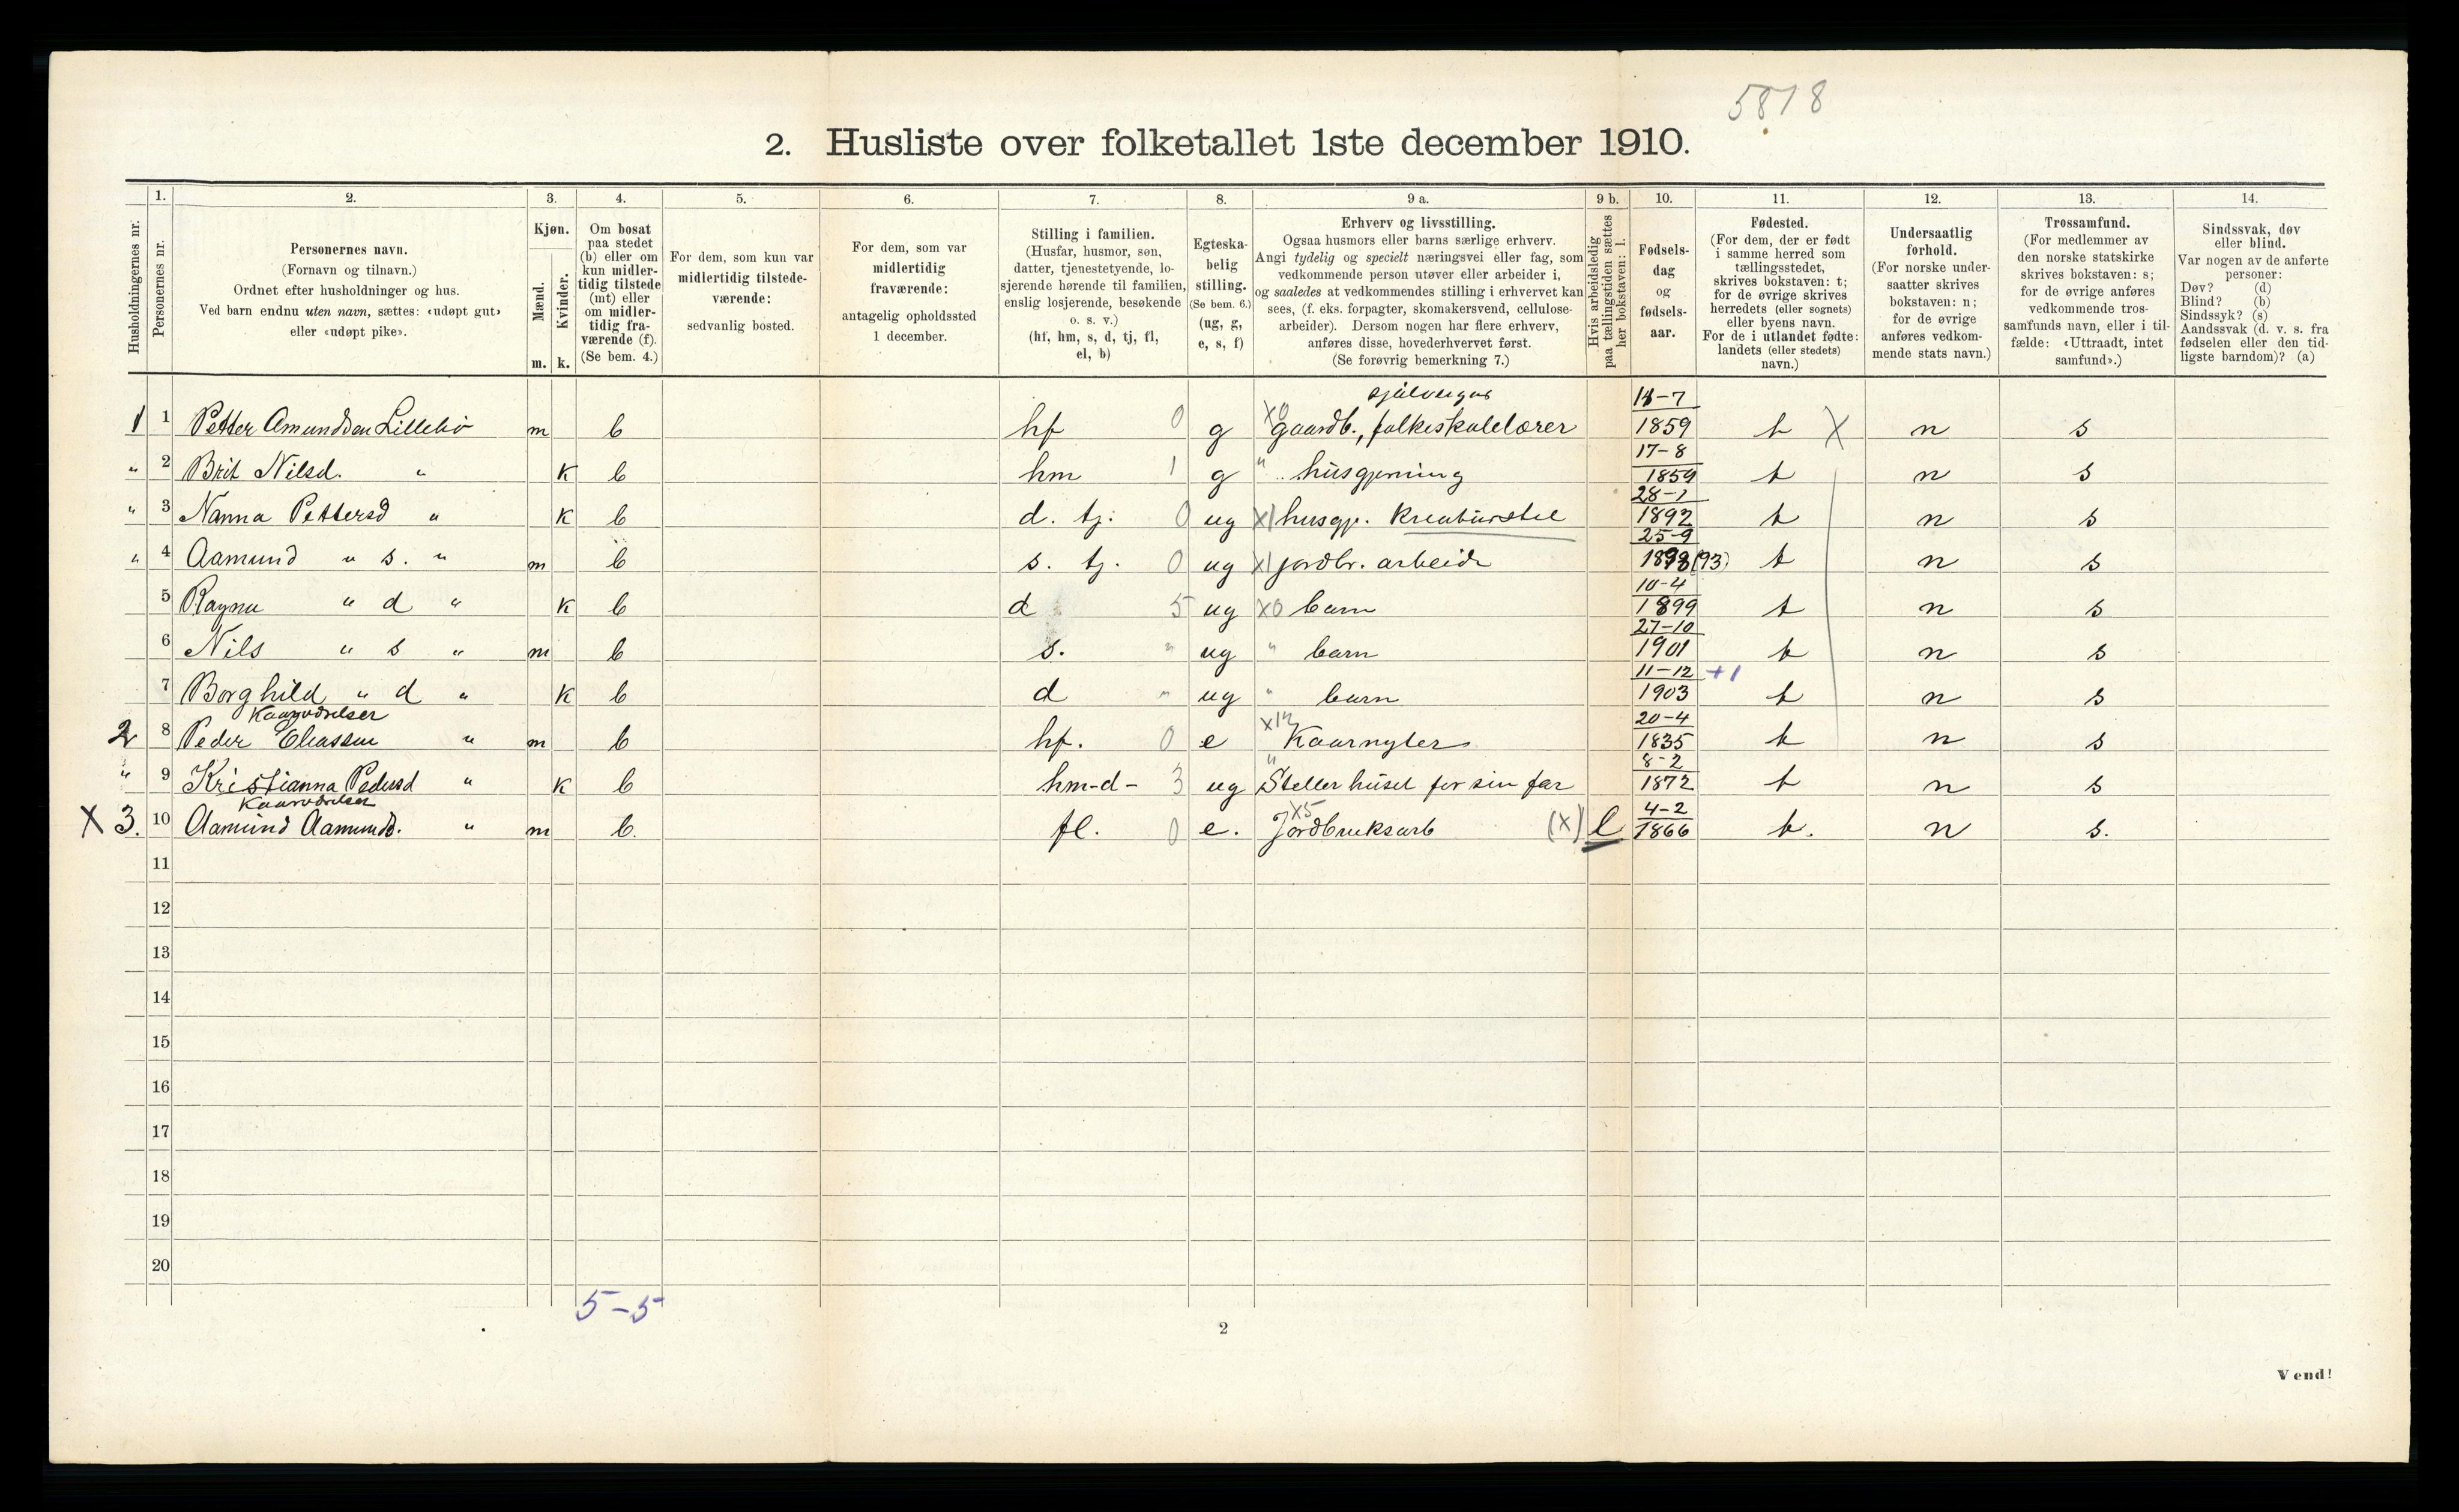 5818
2. Husliste over folketallet 1ste december 1910.
Husholdningernes nr.
1.
Personernes nr.
2.
Personernes navn.
(Fornavn og tilnavn.)
Ordnet efter husholdninger og hus.
Ved barn endnu uten navn, sættes: «udøpt gut»
eller «udøpt pike».
3.
Kjøn.
Mænd.
Kvinder.
m. k.
4.
Om bosat
paa stedet
(b) eller om
kun midler-
tidig tilstede
(mt) eller
om midler-
tidig fra-
værende (f).
(Se bem. 4.)
5.
For dem, som kun var
midlertidig tilstede-
værende:
sedvanlig bosted.
6.
For dem, som var
midlertidig
fraværende:
antagelig opholdssted
1 december.
7.
Stilling i familien.
(Husfar, husmor, søn,
datter, tjenestetyende, lo-
sjerende hørende til familien,
enslig losjerende, besøkende
o. s. v.)
(hf, hm, s, d, tj, fl,
el, b)
8.
Egteska-
belig
stilling.
(Se bem. 6.)
(ug, g,
e, s, f)
9 a.
Erhverv og livsstilling.
Ogsaa husmors eller barns særlige erhverv.
Angi tydelig og specielt næringsvei eller fag, som
vedkommende person utøver eller arbeider i,
og saaledes at vedkommendes stilling i erhvervet kan
sees, (f. eks. forpagter, skomakersvend, cellulose-
arbeider). Dersom nogen har flere erhverv,
anføres disse, hovederhvervet først.
(Se forøvrig bemerkning 7.)
9 b.
Hvis arbeidsledig
paa tællingstiden sættes
her bokstaven: l.
10.
Fødsels-
dag
og
fødsels-
aar.
11.
Fødested.
(For dem, der er født
i samme herred som
tællingsstedet,
skrives bokstaven: t;
for de øvrige skrives
herredets (eller sognets)
eller byens navn.
For de i utlandet fødte:
landets (eller stedets)
navn.)
12.
Undersaatlig
forhold.
(For norske under-
saatter skrives
bokstaven: n;
for de øvrige
anføres vedkom-
mende stats navn.)
13.
Trossamfund.
(For medlemmer av
den norske statskirke
skrives bokstaven: s;
for de øvrige anføres
vedkommende tros-
samfunds navn, eller i til-
fælde: «Uttraadt, intet
samfund».)
14.
Sindssvak, døv
eller blind.
Var nogen av de anførte
personer:
Døv? (d)
Blind? (b)
Sindssyk? (s)
Aandssvak (d. v. s. fra
fødselen eller den tid-
ligste barndom)? (a)
sjálveigar 18-7
1 1 Petter Amundsen Lillebö m b hf 0 g X0 gaardb., folkeskolelærer 1859 t X n s
17-8
" 2 Brit Nilsd. " k b hm 1 g " " husgjerning 1859 t n s
28-1
" 3 Nanna Pettersd " k b d. tj. 0 ug X1 husgj. kreaturstel 1892 t n s
25-9
" 4 Aamund " s. " m b s. tj. 0 ug X1 jordbr. arbeide 1893 (93) t n s
10-4
5 Ragna " d " k b d 5 ug X0 barn 1899 t n s
27-10
6 Nils " s " m b s. " ug " barn 1901 t n s
11-12 +1
7 Borghild " d " k b d " ug " barn 1903 t n s
Kaarvdrelser 20-4
2 8 Peder Eliassen " m b hf. 0 e X12 Kaarnyter 1835 t n s
8-2
" 9 Kristianna Pedersd " k b hm-d- 3 ug " Steller huset for sin far 1872 t n s
Kaarvdrelser 4-2
X 3. 10 Aamund Aamunds. " m b. fl. 0 e. X5 Jordbruksarb (X) l 1866 t. n s.
11
12
13
14
15
16
17
18
19
20
5-5
2
Vend!